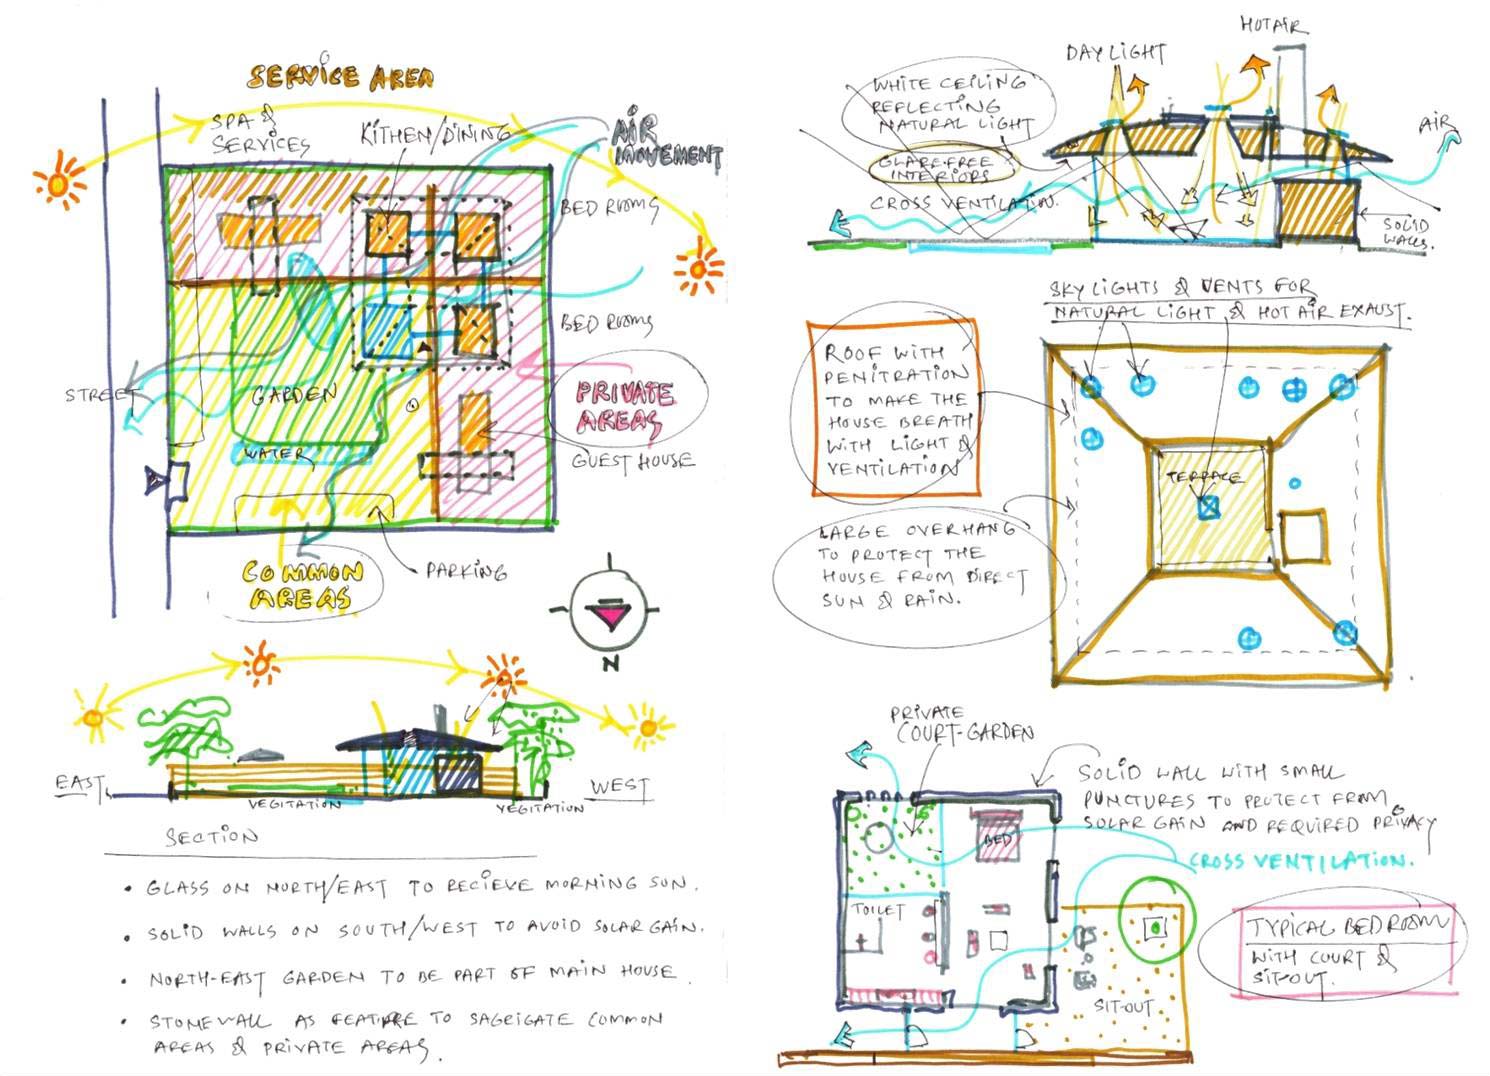 SERVICE AREA
SPA &
SERVICES
KITHEN/DINING
AIR
MOVEMENT
BED ROOMS
BED ROOMS
STREET
GARDEN
WATER
PRIVATE
AREAS
GUEST HOUSE
COMMON
AREAS
PARKING
N
EAST
VEGITATION
VEGITATION
WEST
SECTION
• GLASS ON NORTH/EAST TO RECIEVE MORNING SUN.
• SOLID WALLS ON SOUTH/WEST TO AVOID SOLAR GAIN.
• NORTH-EAST GARDEN TO BE PART OF MAIN HOUSE.
• STONEWALL AS FEATURE TO SAGRIGATE COMMON
AREAS & PRIVATE AREAS.
HOT AIR
DAYLIGHT
WHITE CEILING
REFLECTING
NATURAL LIGHT
GLARE-FREE
INTERIORS
CROSS VENTILATION.
AIR
SOLID
WALLS.
SKYLIGHTS & VENTS FOR
NATURAL LIGHT & HOT AIR EXAUST.
ROOF WITH
PENITRATION
TO MAKE THE
HOUSE BREATH
WITH LIGHT &
VENTILATION
TERRACE
LARGE OVERHANG
TO PROTECT THE
HOUSE FROM DIRECT
SUN & RAIN.
PRIVATE
COURT-GARDEN
SOLID WALL WITH SMALL
PUNCTURES TO PROTECT FROM
SOLAR GAIN AND REQUIRED PRIVACY
CROSS VENTILATION.
BED
TOILET
SIT-OUT
TYPICAL BEDROOM
WITH COURT &
SIT-OUT.